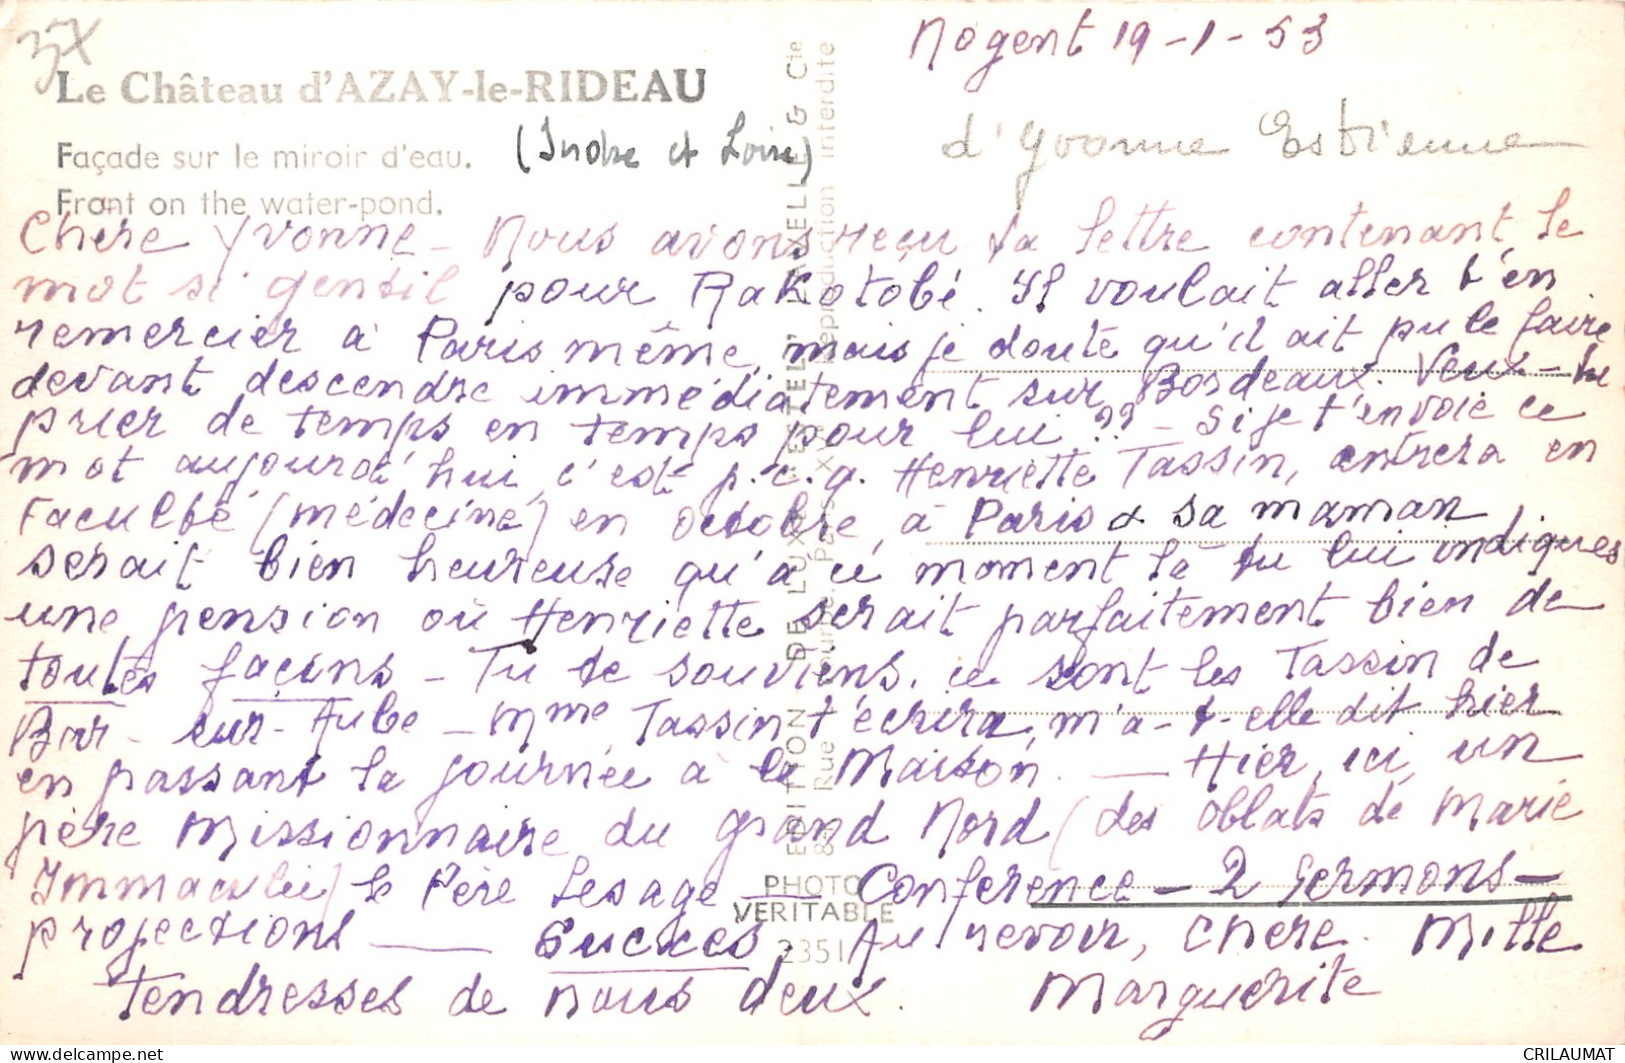 37
Nogent 19-1-53
Le Château d'AZAY-le-RIDEAU
Façade sur le miroir d'eau. (Indre et Loire)
Front on the water-pond.
d'Yvonne Estienne
Chère Yvonne - Nous avons reçu ta lettre contenant le
mot si gentil pour Rakotobé. Il voulait aller t'en
remercier à Paris même, mais je doute qu'il ait pu le faire
devant descendre immédiatement sur Bordeaux. Veux-tu
prier de temps en temps pour lui ?? - Si je t'envoie ce
mot aujourd'hui, c'est p.c.q. Henriette Tassin, entrera en
Faculté (médecine) en octobre, à Paris & sa maman
serait bien heureuse qu'à ce moment là tu lui indiques
une pension où Henriette serait parfaitement bien de
toutes façons - Tu te souviens, ce sont les Tassin de
Bar-sur-Aube - Mme Tassin t'écrira, m'a-t-elle dit hier
en passant la journée à la Maison. — Hier, ici, un
père Missionnaire du grand Nord (des oblats de Marie
Immaculée) le Père Lesage — Conférence - 2 Sermons -
projections — Succès. Au revoir, chère. Mille
tendresses de nous deux. Marguerite
EDITION DE LUXE "ESTEL" LAVELLE & Cie
Reproduction interdite
PHOTO
VERITABLE
2351
CRILAUMAT
delcampe.net